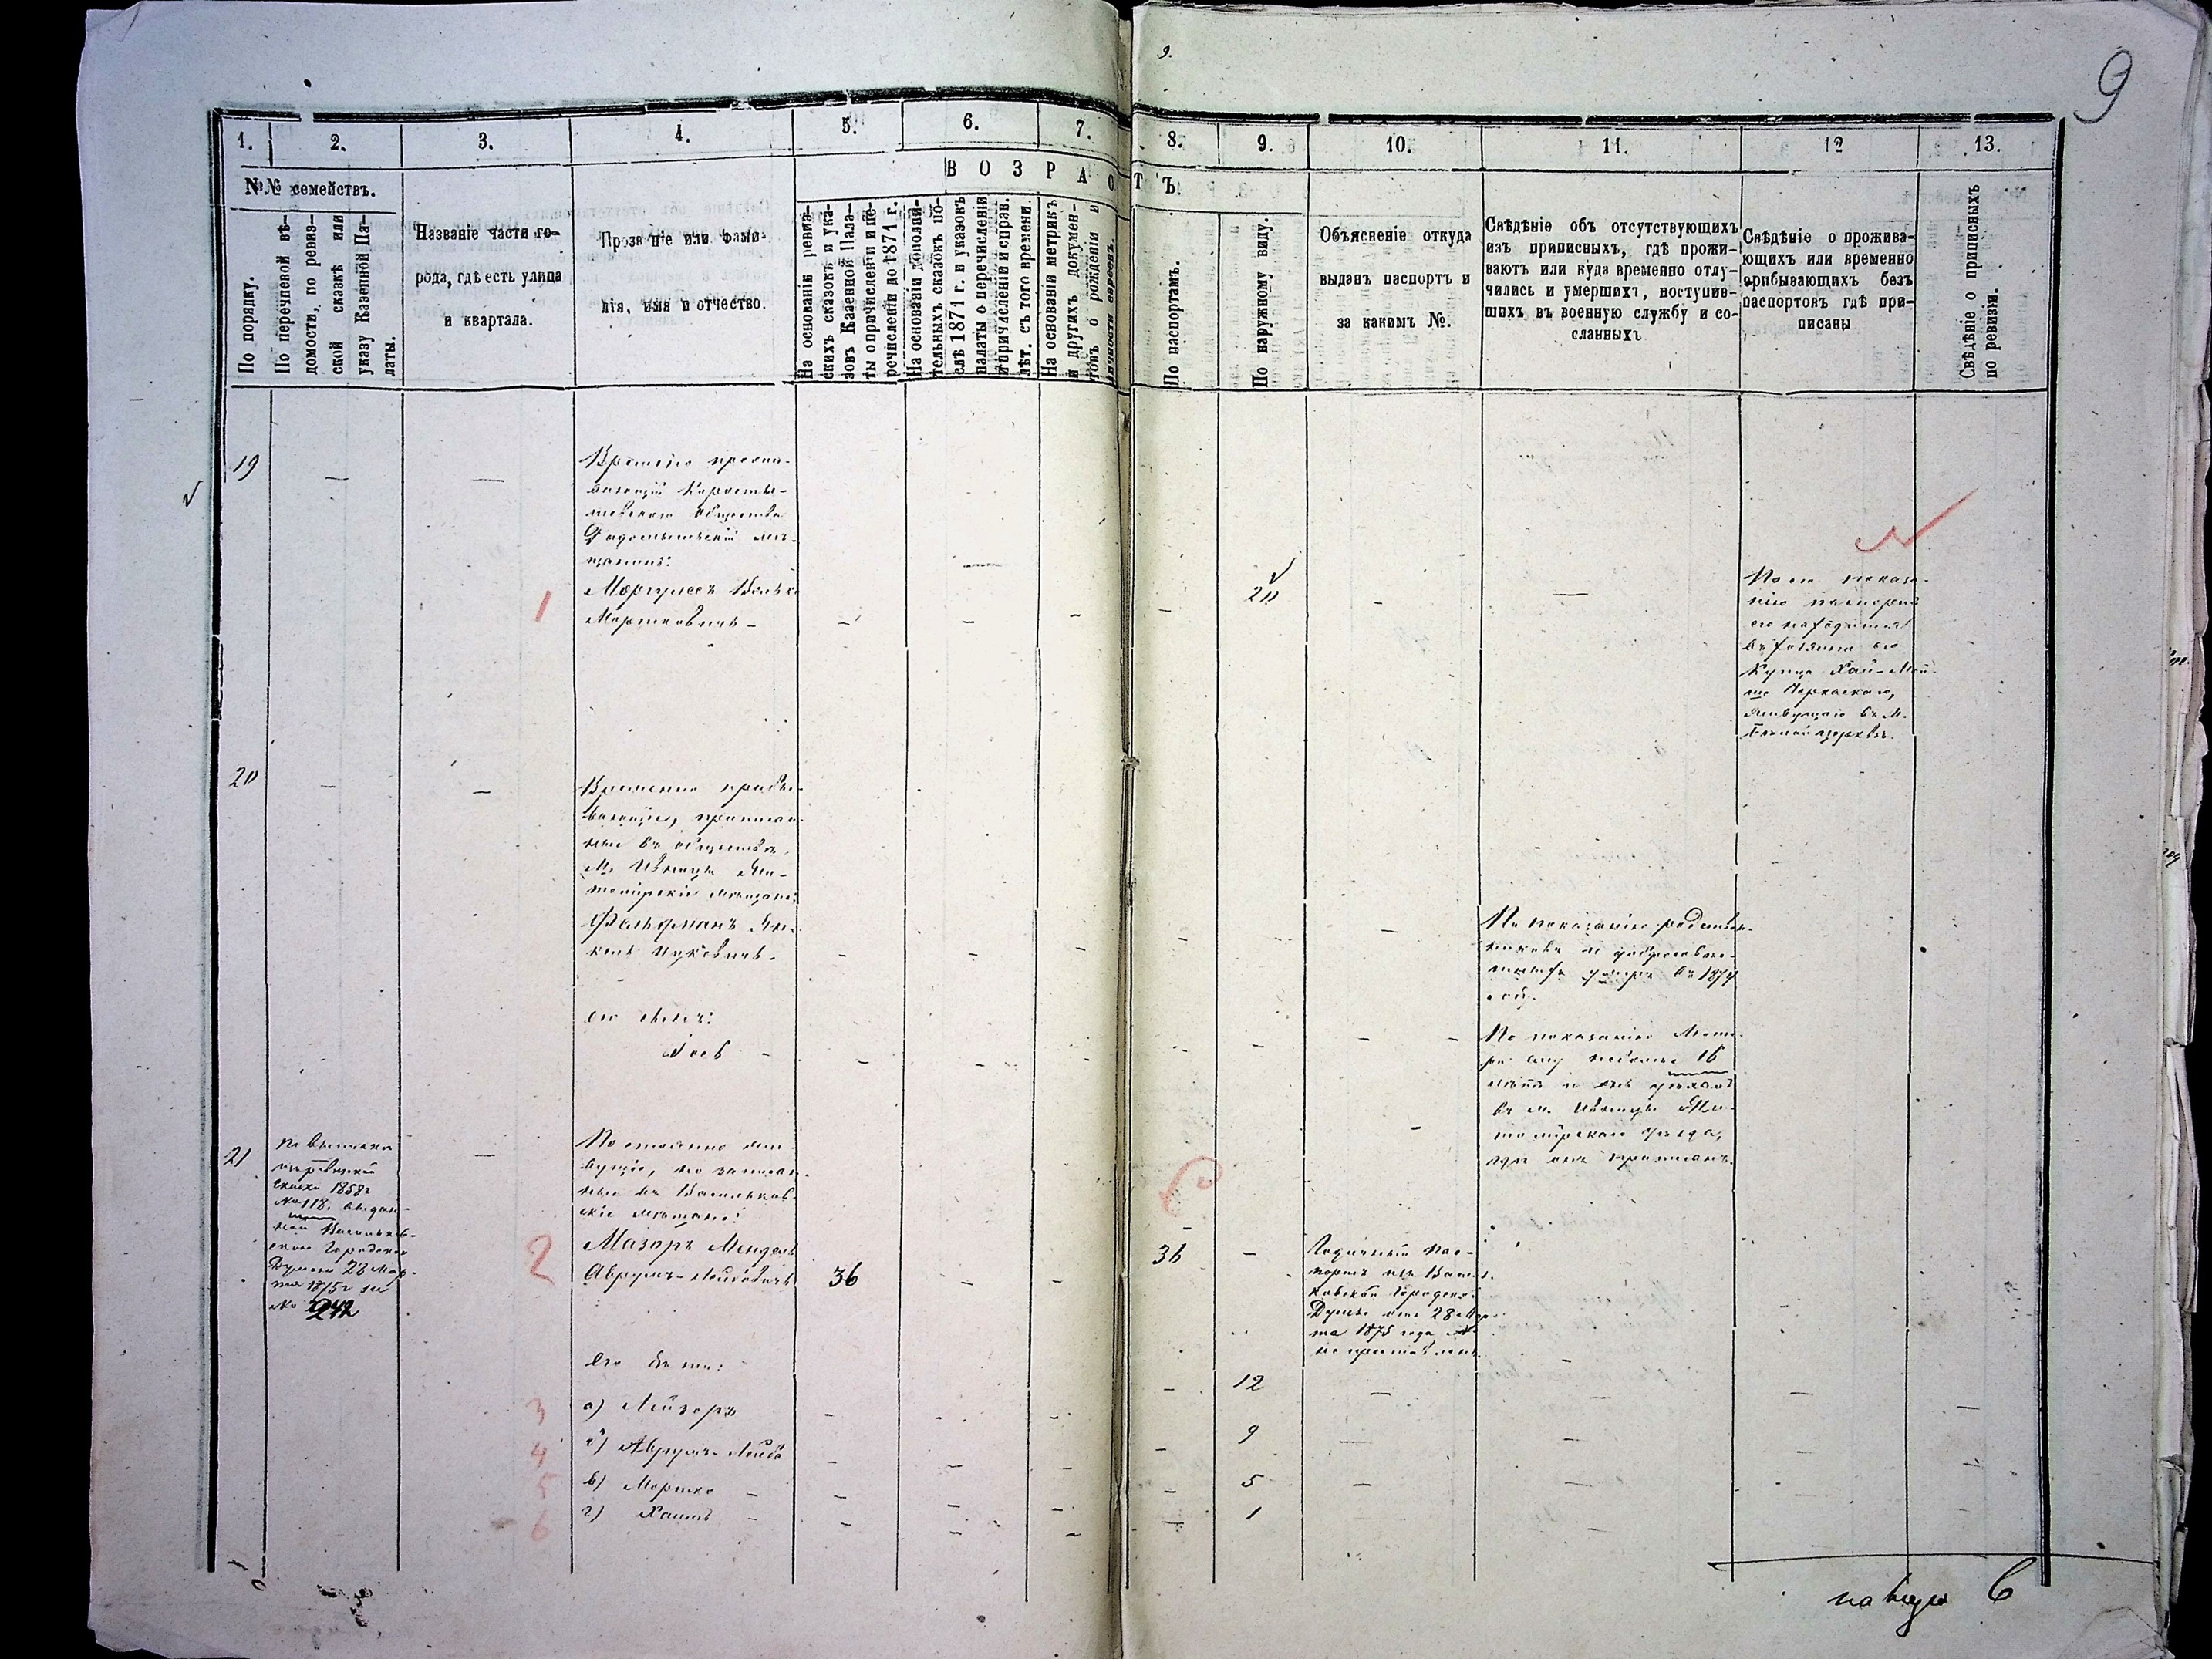 9.
9
1.
2.
3.
4.
5.
6.
7.
8.
9.
10.
11.
12
13.
№№ семействъ.
ВОЗРАСТЪ.
По порядку.
По перечневой вѣ-
домости, по ревиз-
ской сказкѣ или
указу Казенной Па-
латы.
Названіе части го-
рода, гдѣ есть улица
и квартала.
Прозв ніе или фами-
лія, имя и отчество.
На основаніи ревиз-
скихъ сказокъ и ука-
зовъ Казенной Пала-
ты о причисленіи и пе-
речисленіи до 1871 г.
На основаніи дополни-
тельныхъ сказокъ по-
слѣ 1871 г. и указовъ
палаты о перечисленіи
и причисленіи и справ.
лѣт. съ того времени.
На основаніи метрикъ
и другихъ докумен-
товъ о рожденіи и
личности евреевъ.
По паспортамъ.
По наружному виду.
Объясненіе откуда
выданъ паспортъ и
за какимъ №.
Свѣдѣніе объ отсутствующихъ
изъ приписныхъ, гдѣ прожи-
ваютъ или куда временно отлу-
чились и умершихъ, поступив-
шихъ въ военную службу и со-
сланныхъ
Свѣдѣніе о прожива-
ющихъ или временно
прибывающихъ безъ
паспортовъ гдѣ при-
писаны
Свѣдѣніе о приписныхъ
по ревизіи.
19
Временно прожи-
вающій Коросты-
шевскаго Общества
Радомысльскій мѣ-
щанинъ:
1
Моргулесъ Волько
Моршковичъ -
20
По его показа-
нію паспортъ
его находится
въ хозяина его
Купца Хаи-Мой-
ше Черкаскаго,
живущаго въ М.
Бѣлой церквѣ.
20
Временно прибы-
вающіе, приписан-
ные въ обществѣ
М. Ивницы Жи-
томірскіе мѣщане:
Фельдманъ Ян-
кель Ицковичъ -
По показанію родствен-
никовъ и
умеръ въ 1874
году.
его сынъ:
Іосъ -
По показанію Мате-
ри ему нынѣ 16
лѣтъ и онъ уѣхалъ
въ м. Ивницы Жи-
томірскаго уѣзда,
гдѣ онъ приписанъ.
21
По выписки
изъ ревизской
сказки 1858 г
№ 118. выдан-
ной Васильков-
скою Городскою
Думою 28 Мар-
та 1875 г за
№ 242
Постоянно жи-
вущіе, но записан-
ные въ Васильков-
скіе мѣщане:
2
Мазоръ Мендель
Аврумъ-Лейбовичъ
36
36
Годичный пас-
портъ изъ Василь-
ковской Городской
Думы отъ 28 Мар-
та 1875 года №
не проставленъ.
Его дѣти:
3
а) Лейзоръ
12
4
б) Аврумъ-Лейба
9
5
в) Моршко -
5
6
г) Хаимъ -
1
на лицо 6